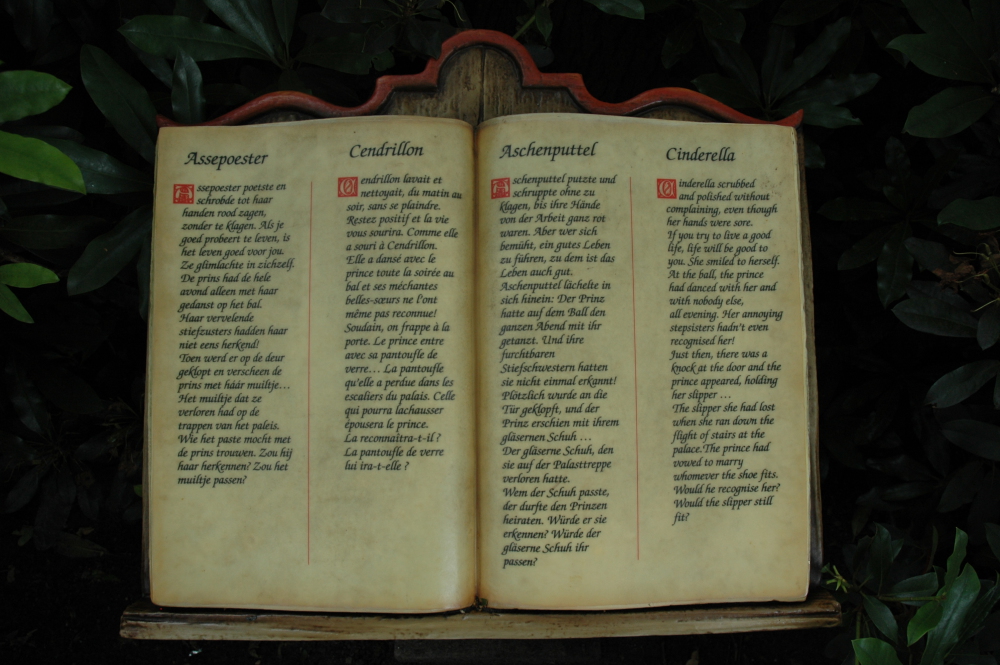 Assepoester
Assepoester poetste en
schrobde tot haar
handen rood zagen,
zonder te klagen. Als je
goed probeert te leven, is
het leven goed voor jou.
Ze glimlachte in zichzelf.
De prins had de hele
avond alleen met haar
gedanst op het bal.
Haar vervelende
stiefzusters hadden haar
niet eens herkend!
Toen werd er op de deur
geklopt en verscheen de
prins met háár muiltje...
Het muiltje dat ze
verloren had op de
trappen van het paleis.
Wie het paste mocht met
de prins trouwen. Zou hij
haar herkennen? Zou het
muiltje passen?
Cendrillon
Cendrillon lavait et
nettoyait, du matin au
soir, sans se plaindre.
Restez positif et la vie
vous sourira. Comme elle
a souri à Cendrillon.
Elle a dansé avec le
prince toute la soirée au
bal et ses méchantes
belles-sœurs ne l'ont
même pas reconnue!
Soudain, on frappe à la
porte. Le prince entre
avec sa pantoufle de
verre... La pantoufle
qu'elle a perdue dans les
escaliers du palais. Celle
qui pourra lachausser
épousera le prince.
La reconnaîtra-t-il ?
La pantoufle de verre
lui ira-t-elle ?
Aschenputtel
Aschenputtel putzte und
schruppte ohne zu
klagen, bis ihre Hände
von der Arbeit ganz rot
waren. Aber wer sich
bemüht, ein gutes Leben
zu führen, zu dem ist das
Leben auch gut.
Aschenputtel lächelte in
sich hinein: Der Prinz
hatte auf dem Ball den
ganzen Abend mit ihr
getanzt. Und ihre
furchtbaren
Stiefschwestern hatten
sie nicht einmal erkannt!
Plötzlich wurde an die
Tür geklopft, und der
Prinz erschien mit ihrem
gläsernen Schuh ...
Der gläserne Schuh, den
sie auf der Palasttreppe
verloren hatte.
Wem der Schuh passte,
der durfte den Prinzen
heiraten. Würde er sie
erkennen? Würde der
gläserne Schuh ihr
passen?
Cinderella
Cinderella scrubbed
and polished without
complaining, even though
her hands were sore.
If you try to live a good
life, life will be good to
you. She smiled to herself.
At the ball, the prince
had danced with her and
with nobody else,
all evening. Her annoying
stepsisters hadn't even
recognised her!
Just then, there was a
knock at the door and the
prince appeared, holding
her slipper ...
The slipper she had lost
when she ran down the
flight of stairs at the
palace.The prince had
vowed to marry
whomever the shoe fits.
Would he recognise her?
Would the slipper still
fit?